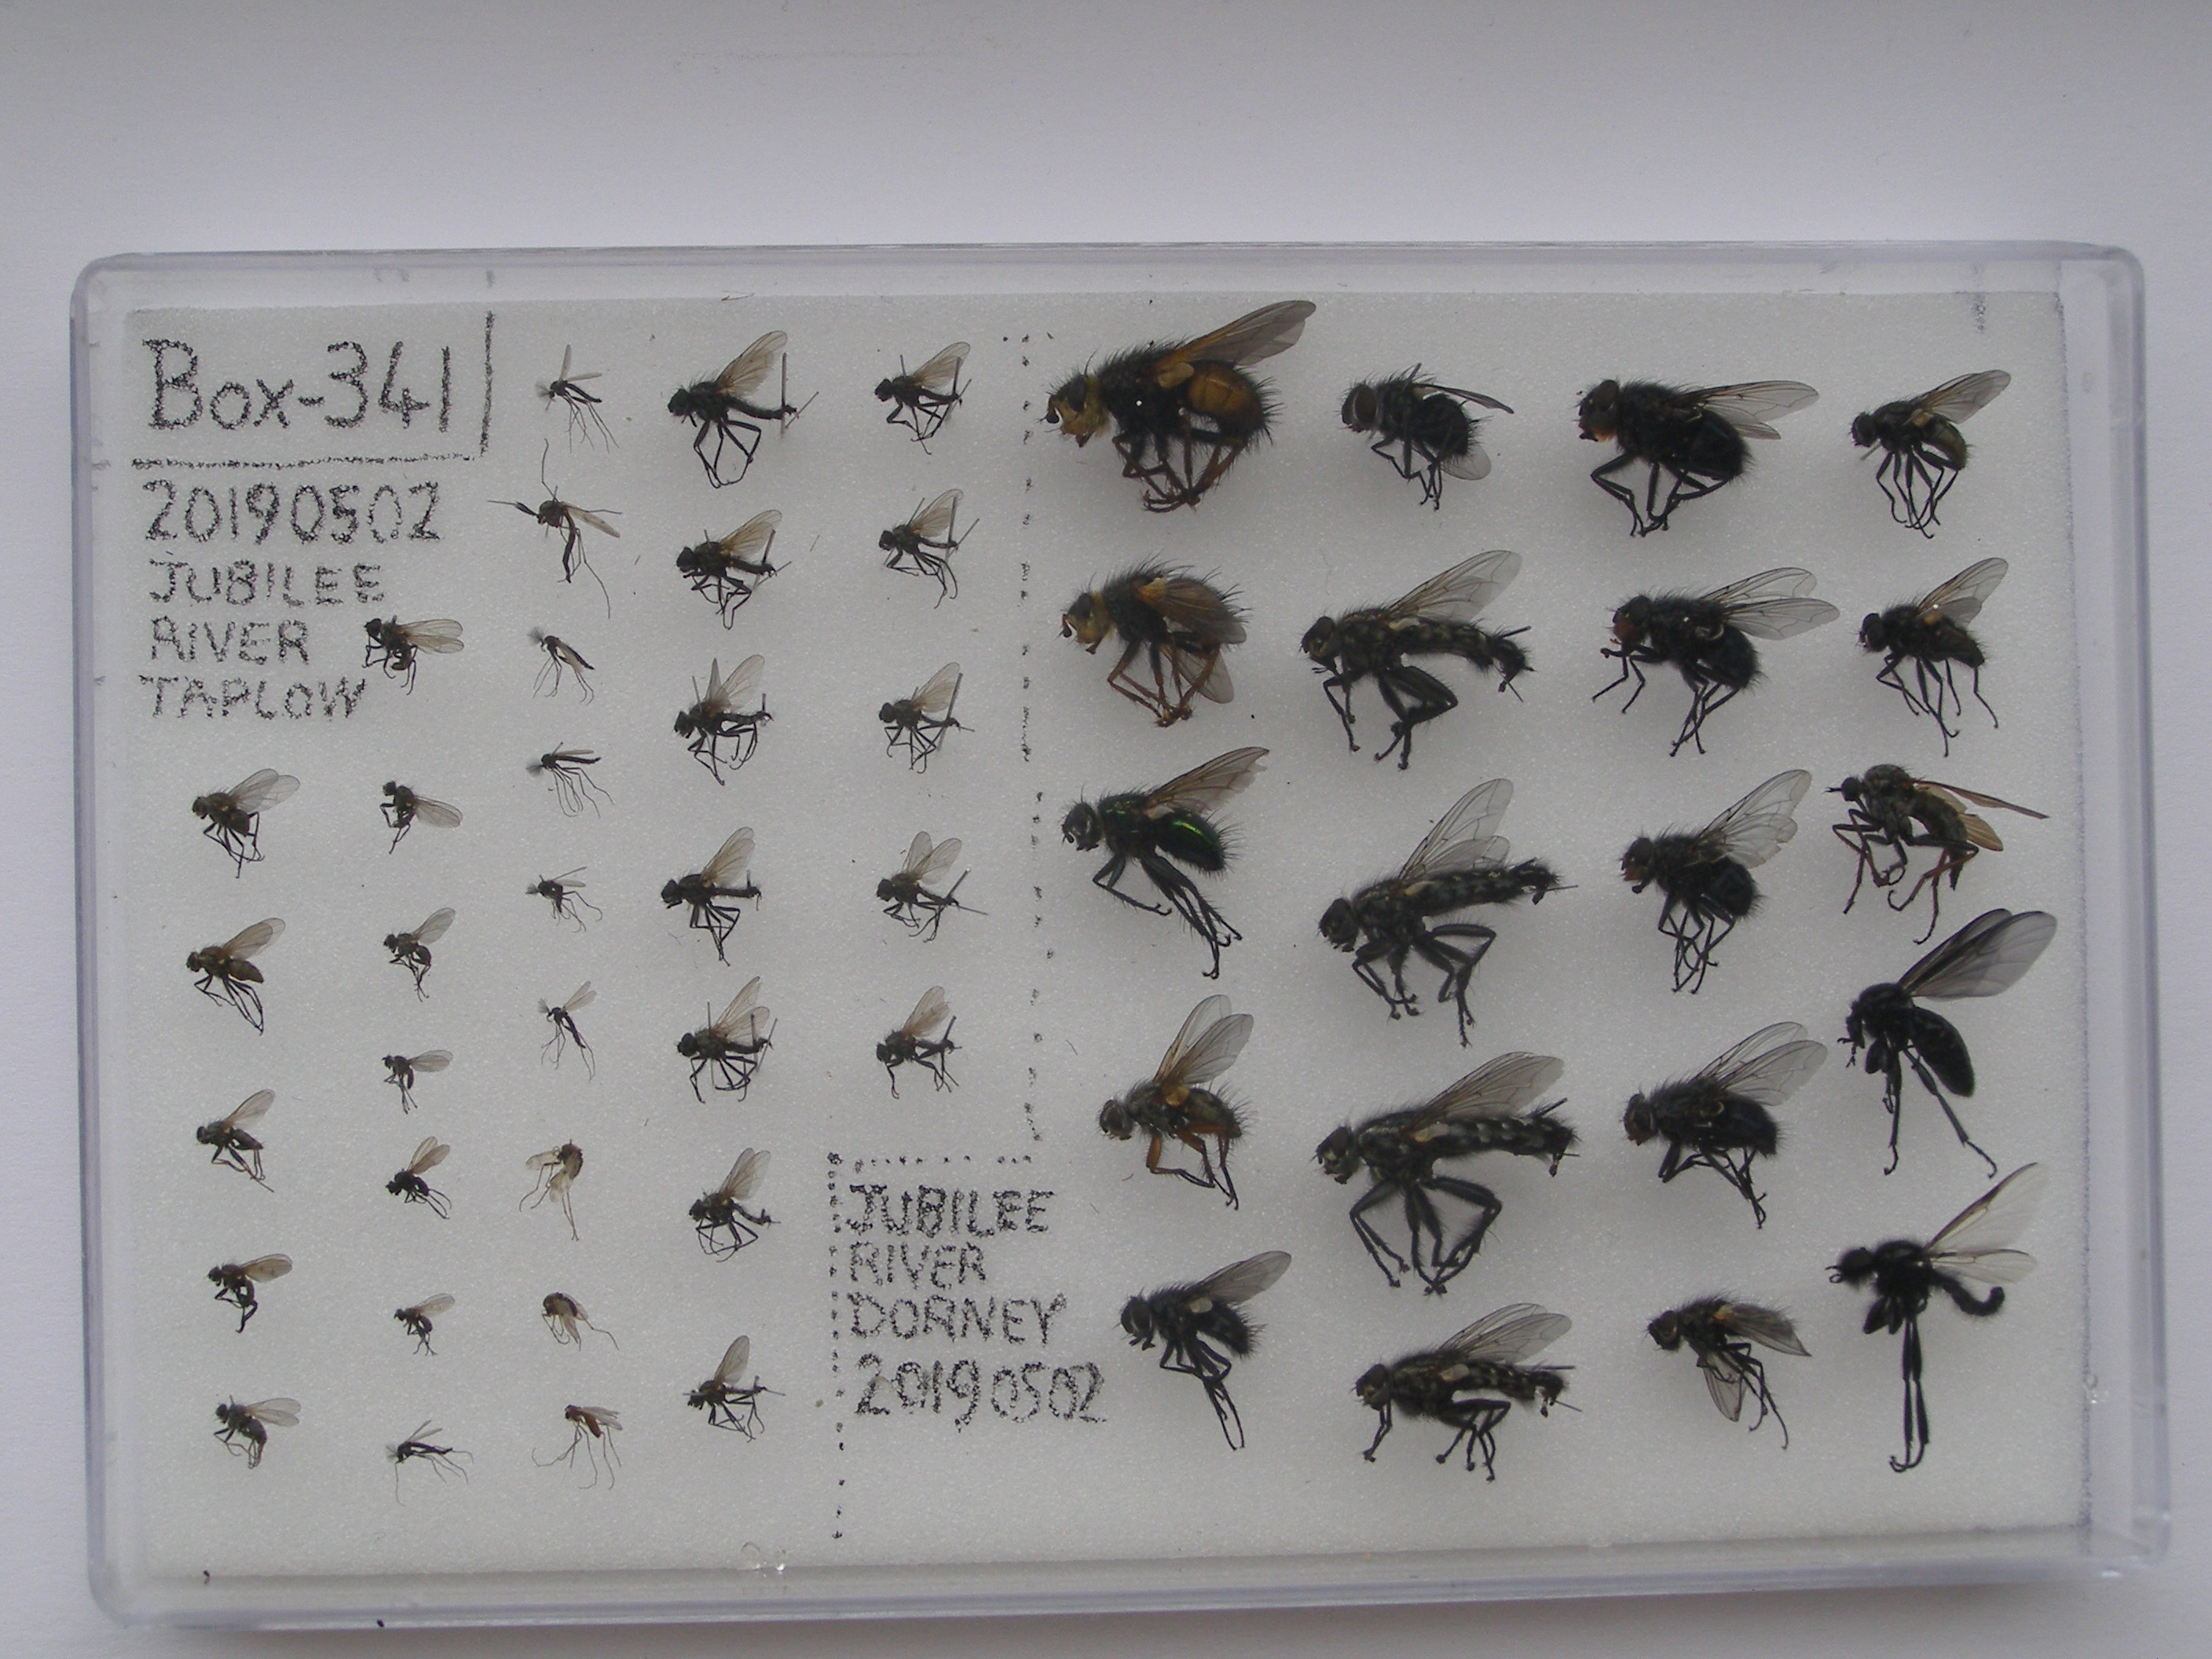 Box-341
20190502
JUBILEE
RIVER
TAPLOW
JUBILEE
RIVER
DORNEY
20190502